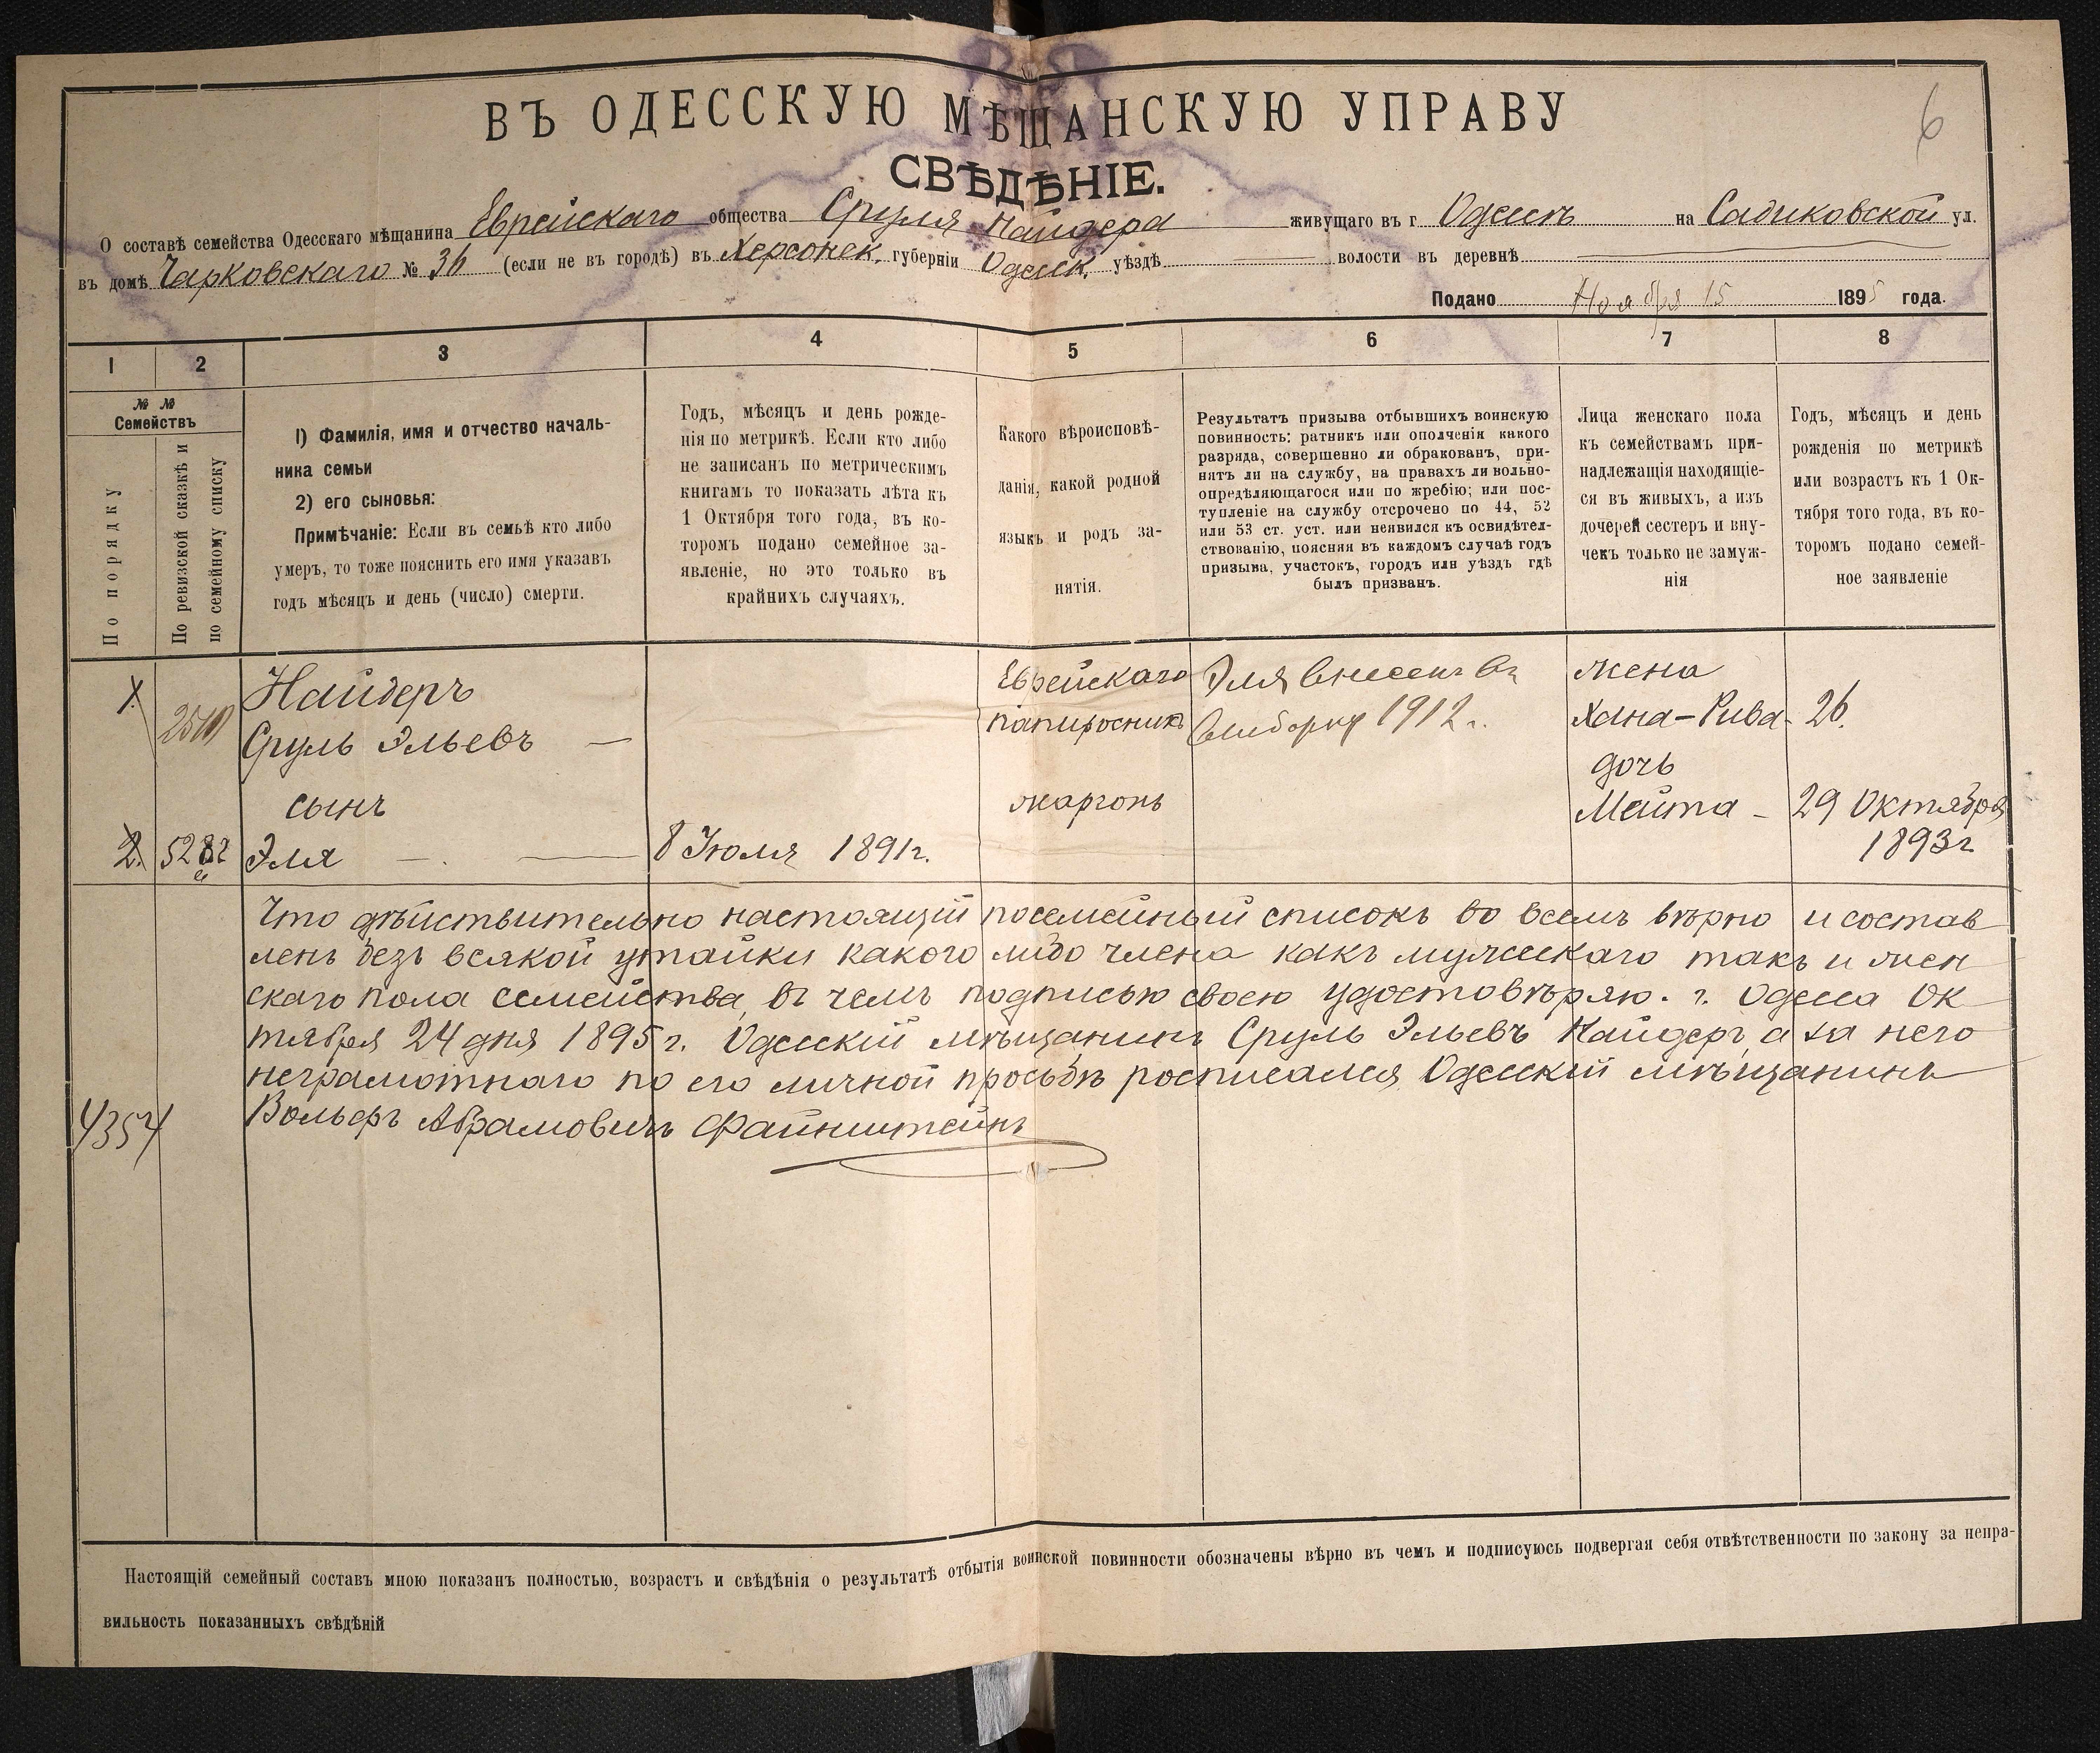 6
ВЪ ОДЕССКУЮ МѢЩАНСКУЮ УПРАВУ
СВѢДѢНІЕ.
О составѣ семейства Одесскаго мѣщанина Еврейскаго общества Сруля Найдера живущаго въ г. Одессѣ на Садиковской ул.
въ домѣ Чарковскаго № 36 (если не въ городѣ) въ Херсонск. губерніи Одесск. уѣздѣ волости въ деревнѣ
Подано Ноября 15 1895 года.
1 2 3 4 5 6 7 8
№ №
Семействъ
По порядку
По ревизской сказкѣ и
по семейному списку
1) Фамилія, имя и отчество началь-
ника семьи
2) его сыновья:
Примѣчаніе: Если въ семьѣ кто либо
умеръ, то тоже пояснить его имя указавъ
годъ мѣсяцъ и день (число) смерти.
Годъ, мѣсяцъ и день рожде-
нія по метрикѣ. Если кто либо
не записанъ по метрическимъ
книгамъ то показать лѣта къ
1 Октября того года, въ ко-
торомъ подано семейное за-
явленіе, но это только въ
крайнихъ случаяхъ.
Какого вѣроисповѣ-
данія, какой родной
языкъ и родъ за-
нятія.
Результатъ призыва отбывшихъ воинскую
повинность: ратникъ или ополченія какого
разряда, совершенно ли обракованъ, при-
нятъ ли на службу, на правахъ ли вольно-
опредѣляющагося или по жребію; или пос-
тупленіе на службу отсрочено по 44, 52
или 53 ст. уст. или неявился къ освидѣтел-
ствованію, поясняя въ каждомъ случаѣ годъ
призыва, участокъ, городъ или уѣздъ гдѣ
былъ призванъ.
Лица женскаго пола
къ семействамъ при-
надлежащія находящіе-
ся въ живыхъ, а изъ
дочерей сестеръ и вну-
чекъ только не замуж-
нія
Годъ, мѣсяцъ и день
рожденія по метрикѣ
или возрастъ къ 1 Ок-
тября того года, въ ко-
торомъ подано семей-
ное заявленіе
1. Найдеръ Еврейскаго Эля внесенъ въ жена
Сруль Эльевъ — папиросникъ выборку 1912 г. Хана-Рива- 26.
дочь
сынъ жаргонъ Мейта - 29 Октября
2. Эля — 8 Іюля 1891г. 1893г
Что дѣйствительно настоящій посемейный списокъ во всемъ вѣрно и состав
ленъ безъ всякой утайки какого либо члена какъ мужескаго такъ и жен
скаго пола семейства, въ чемъ подписью своею удостовѣряю. г. Одесса Ок
тября 24 дня 1895 г. Одесскій мѣщанинъ Сруль Эльевъ Найдеръ, а за него
неграмотнаго по его личной просьбѣ росписался Одесскій мѣщанинъ
Вольфъ Абрамовичъ Файнштейнъ
4354
Настоящій семейный составъ мною показанъ полностью, возрастъ и свѣдѣнія о результатѣ отбытія воинской повинности обозначены вѣрно въ чемъ и подписуюсь подвергая себя отвѣтственности по закону за непра-
вильность показанныхъ свѣдѣній